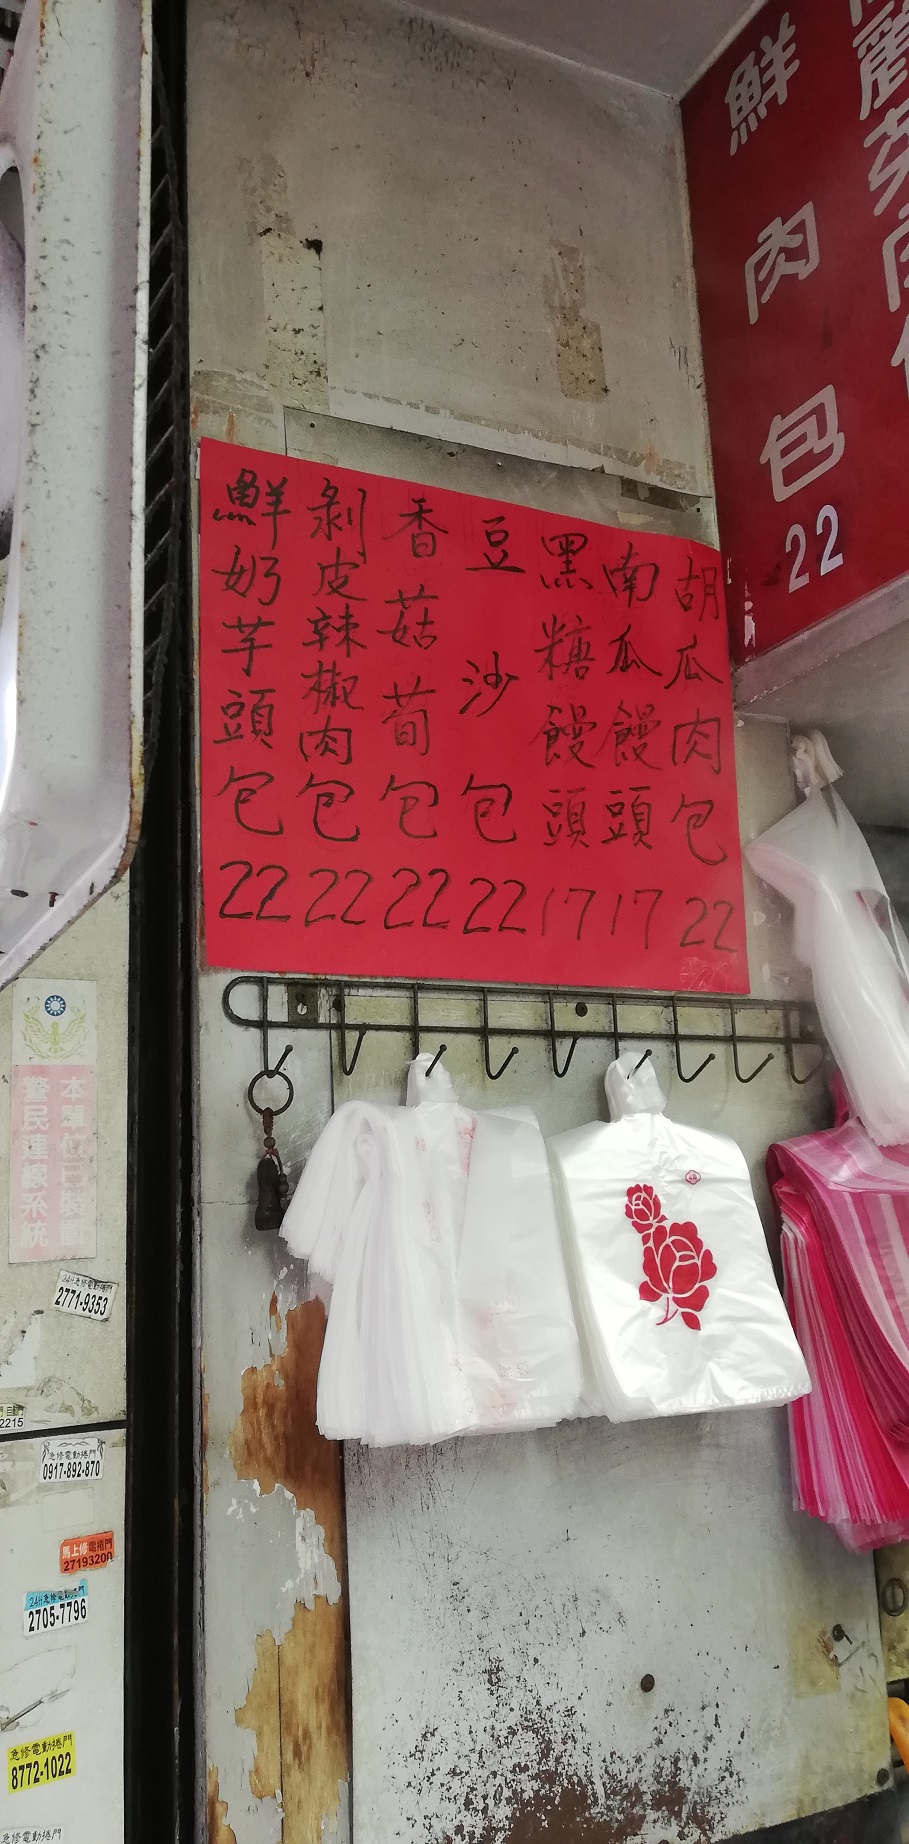 鮮肉包22
胡瓜肉包22
南瓜饅頭17
黑糖饅頭17
豆沙包22
香菇荀包22
剝皮辣椒肉包22
鮮奶芋頭包22
本單位已裝置
警民連線系統
24H急修電動捲門
2771-9353
2215
急修電動捲門
0917-892-870
馬上修電捲門
27193200
24H急修電動捲門
2705-7796
急修電動捲門
8772-1022
急修電動捲門